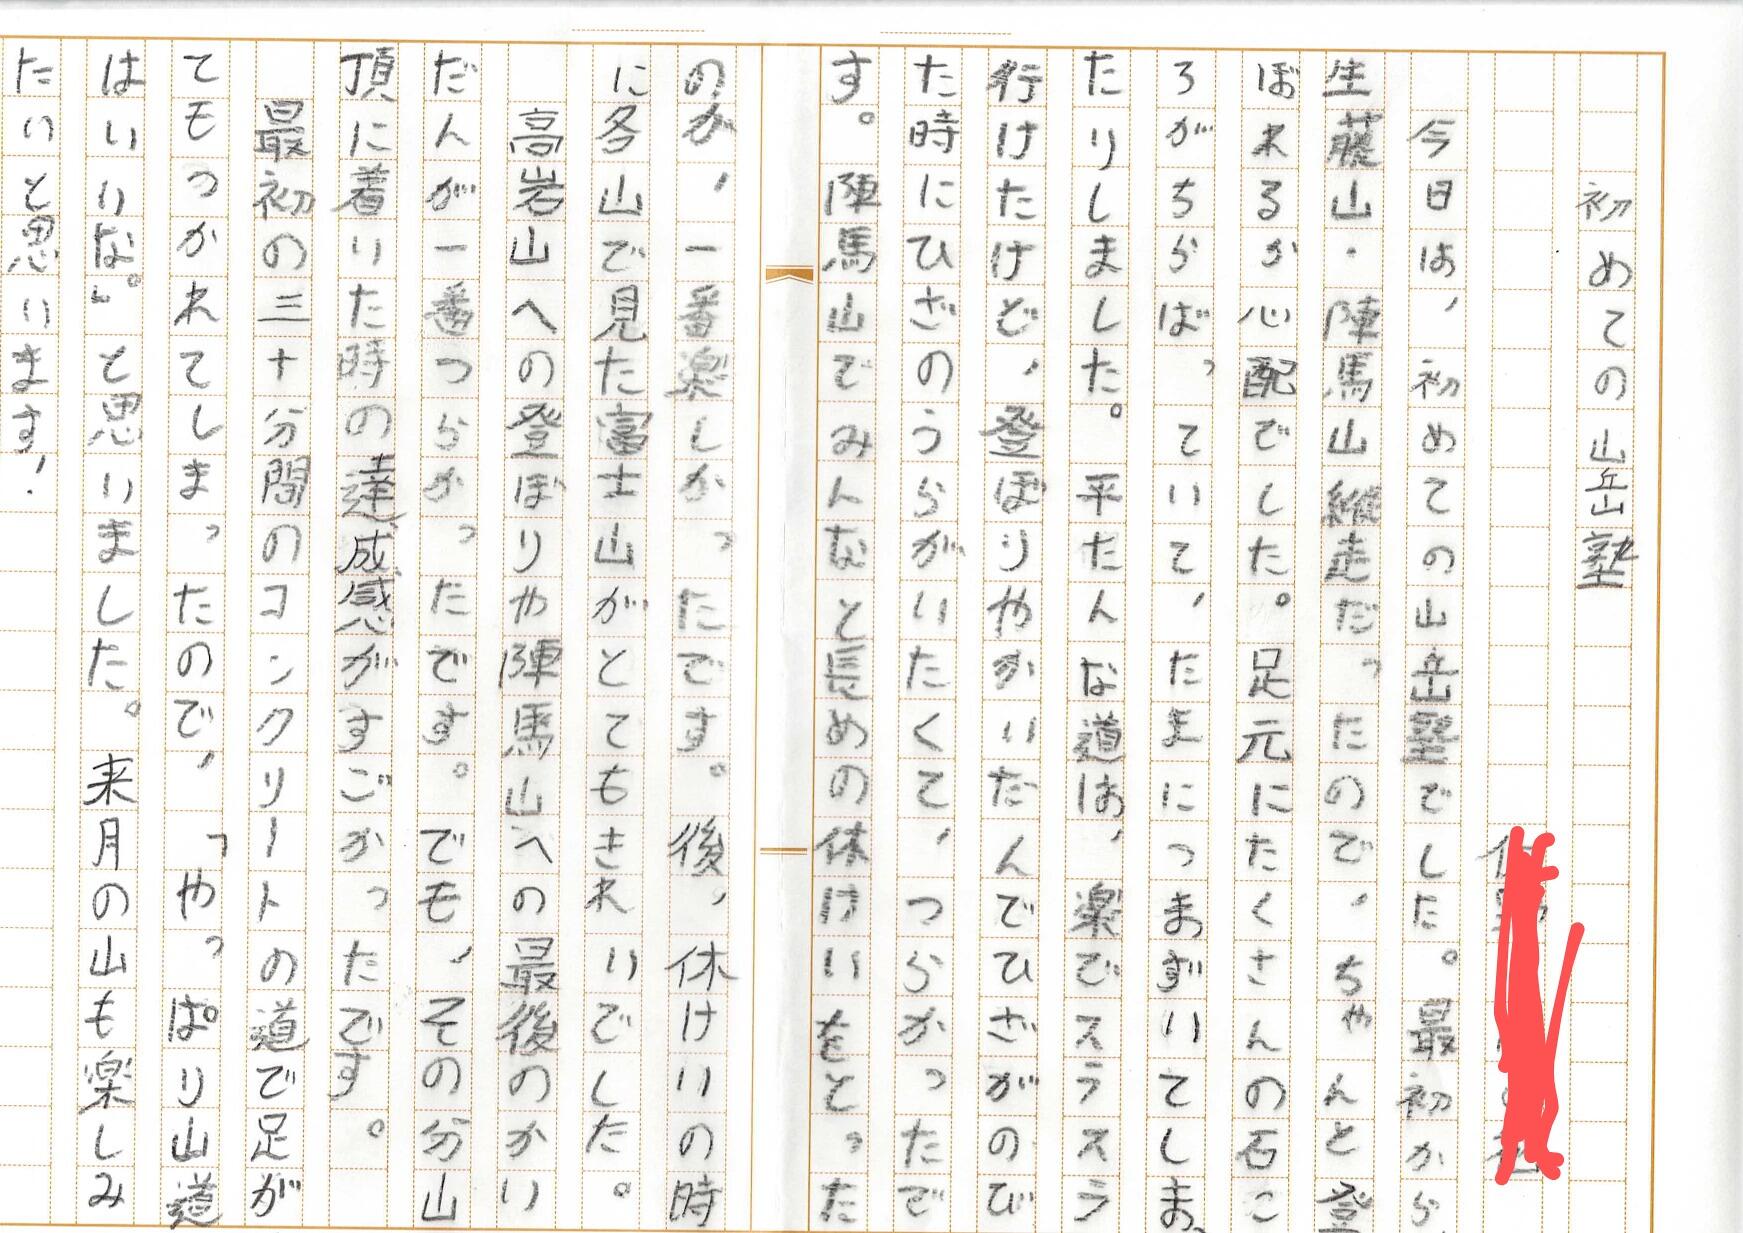 初めての山岳塾
今日は、初めての山岳塾でした。最初から、
生藤山・陣馬山縦走だったので、ちゃんと登
ぼれるか心配でした。足元にたくさんの石こ
ろがちらばっていて、たまにつまずいてしまっ
たりしました。平たんな道は、楽でスラスラ
行けたけど、登ぼりやかいだんでひざがのび
た時にひざのうらがいたくて、つらかったで
す。陣馬山でみんなと長めの休けいをとった
のが、一番楽しかったです。後、休けいの時
に各山で見た富士山がとてもきれいでした。
高岩山への登ぼりや陣馬山への最後のかい
だんが一番つらかったです。でも、その分山
頂に着いた時の達成感がすごかったです。
最初の三十分間のコンクリートの道で足が
てもつかれてしまったので、「やっぱり山道
はいいな。」と思いました。来月の山も楽しみ
たいと思います!